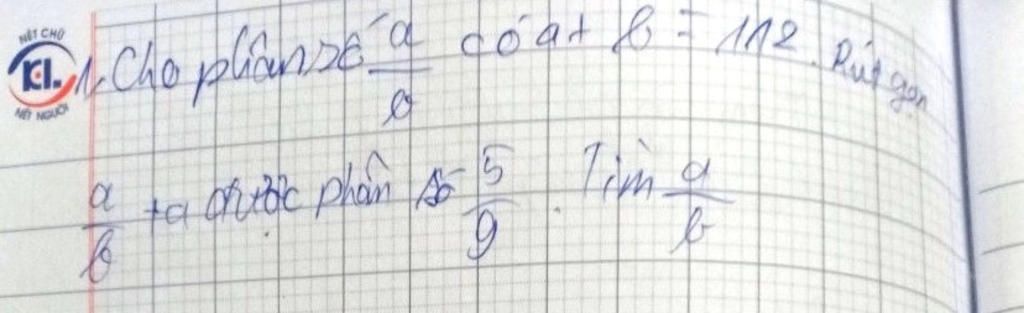 NÉT CHỮ
KL.
NẾT NGƯỜI
1, Cho phân số a/b có a + b = 112. Rút gọn
a/b ta được phân số 5/9. Tìm a/b